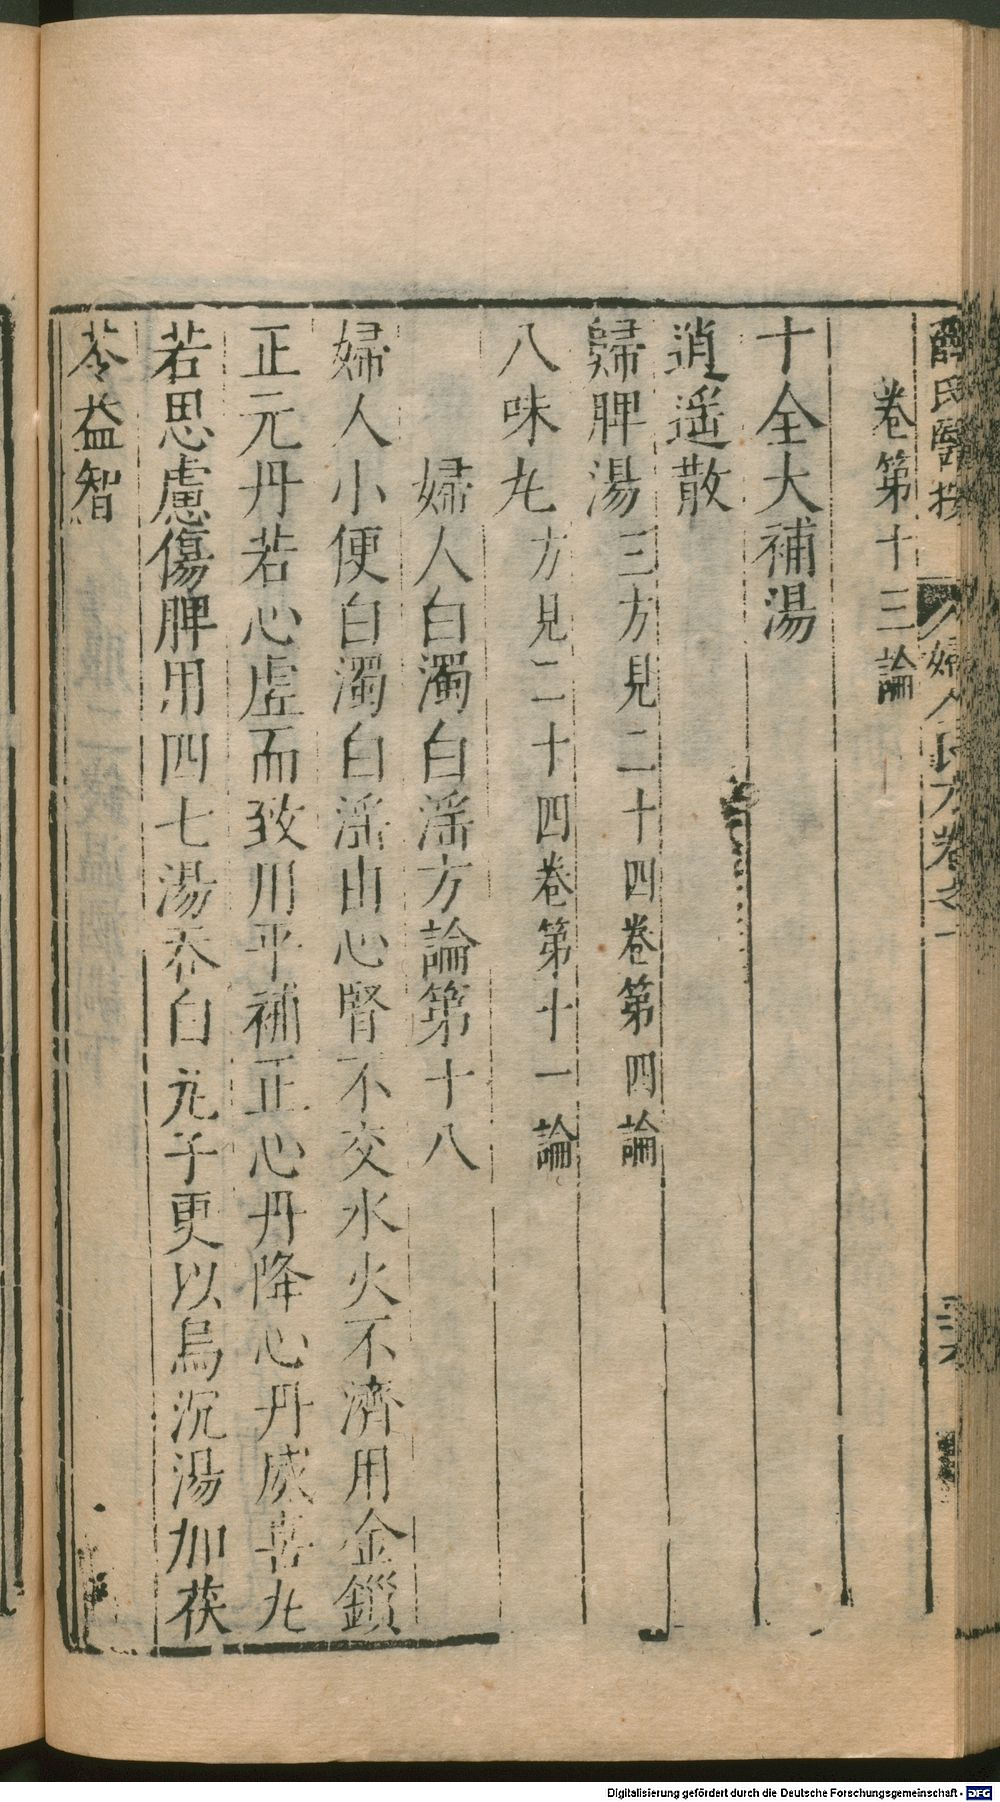 薛氏醫按 婦人良方卷之一 二十六
卷第十三論
十全大補湯
逍遥散
歸脾湯三方見二十四卷第四論
八味丸方見二十四卷第十一論
婦人白濁白淫方論第十八
婦人小便白濁白淫由心腎不交水火不濟用金鎖
正元丹若心虛而致用平補正心丹降心丹威喜丸
若思慮傷脾用四七湯吞白丸子更以烏沉湯加茯
苓益智
Digitalisierung gefördert durch die Deutsche Forschungsgemeinschaft - DFG